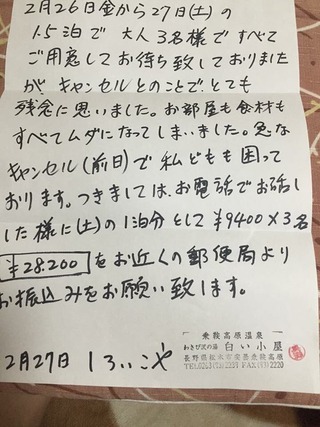 2月26日金から27日(土)の
1.5泊で 大人3名様で すべて
ご用意してお待ち致しておりました
が キャンセルとのことで、とても
残念に思いました。お部屋も食材も
すべてムダになってしまいました。急な
キャンセル(前日)で私どもも困って
おります。つきましては、お電話でお話し
した様に(土)の1泊分として ¥9400×3名
¥28.200 をお近くの郵便局より
お振込みをお願い致します。
2月27日 しろいこや
乗鞍高原温泉
わさび沢の湯 白い小屋
長野県松本市安曇乗鞍高原